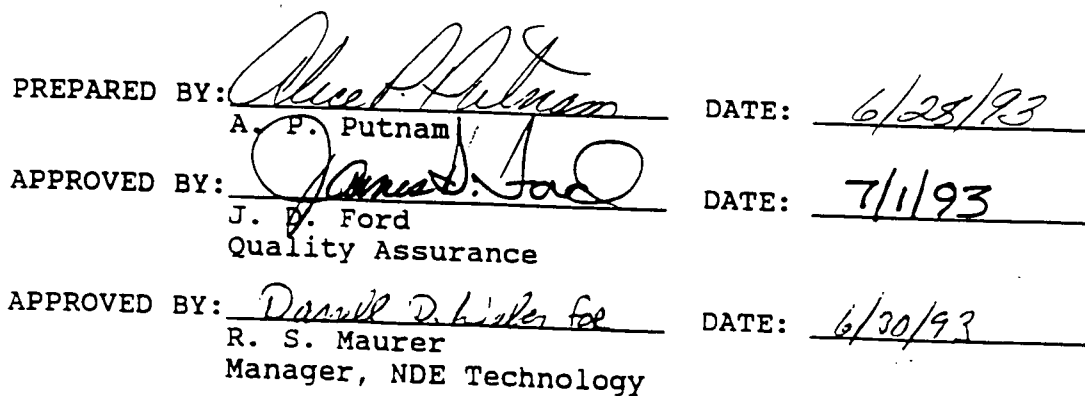 PREPARED BY: Alice P. Putnam DATE: 6/28/93
A. P. Putnam
APPROVED BY: James D. Ford DATE: 7/1/93
J. D. Ford
Quality Assurance
APPROVED BY: Darrell D. for DATE: 6/30/93
R. S. Maurer
Manager, NDE Technology